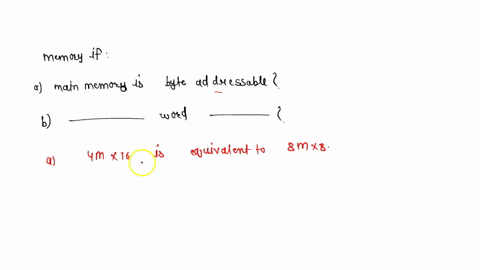 memory if:
a) main memory is byte addressable?
b) ——— word ———?
a) 4M x 16 is equivalent to 8M x 8.